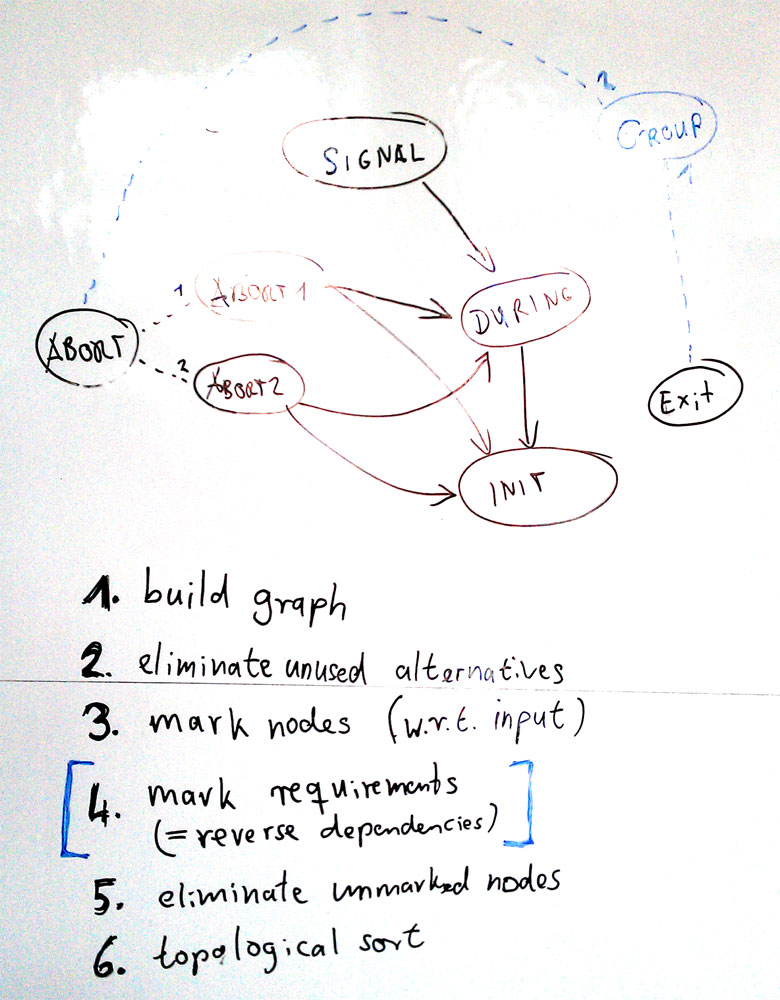 2
GROUP
SIGNAL
1
1
ABORT1
DURING
ABORT
2
ABORT2
Exit
INIT
1. build graph
2. eliminate unused alternatives
3. mark nodes (w.r.t. input)
[4. mark requirements
(= reverse dependencies)]
5. eliminate unmarked nodes
6. topological sort